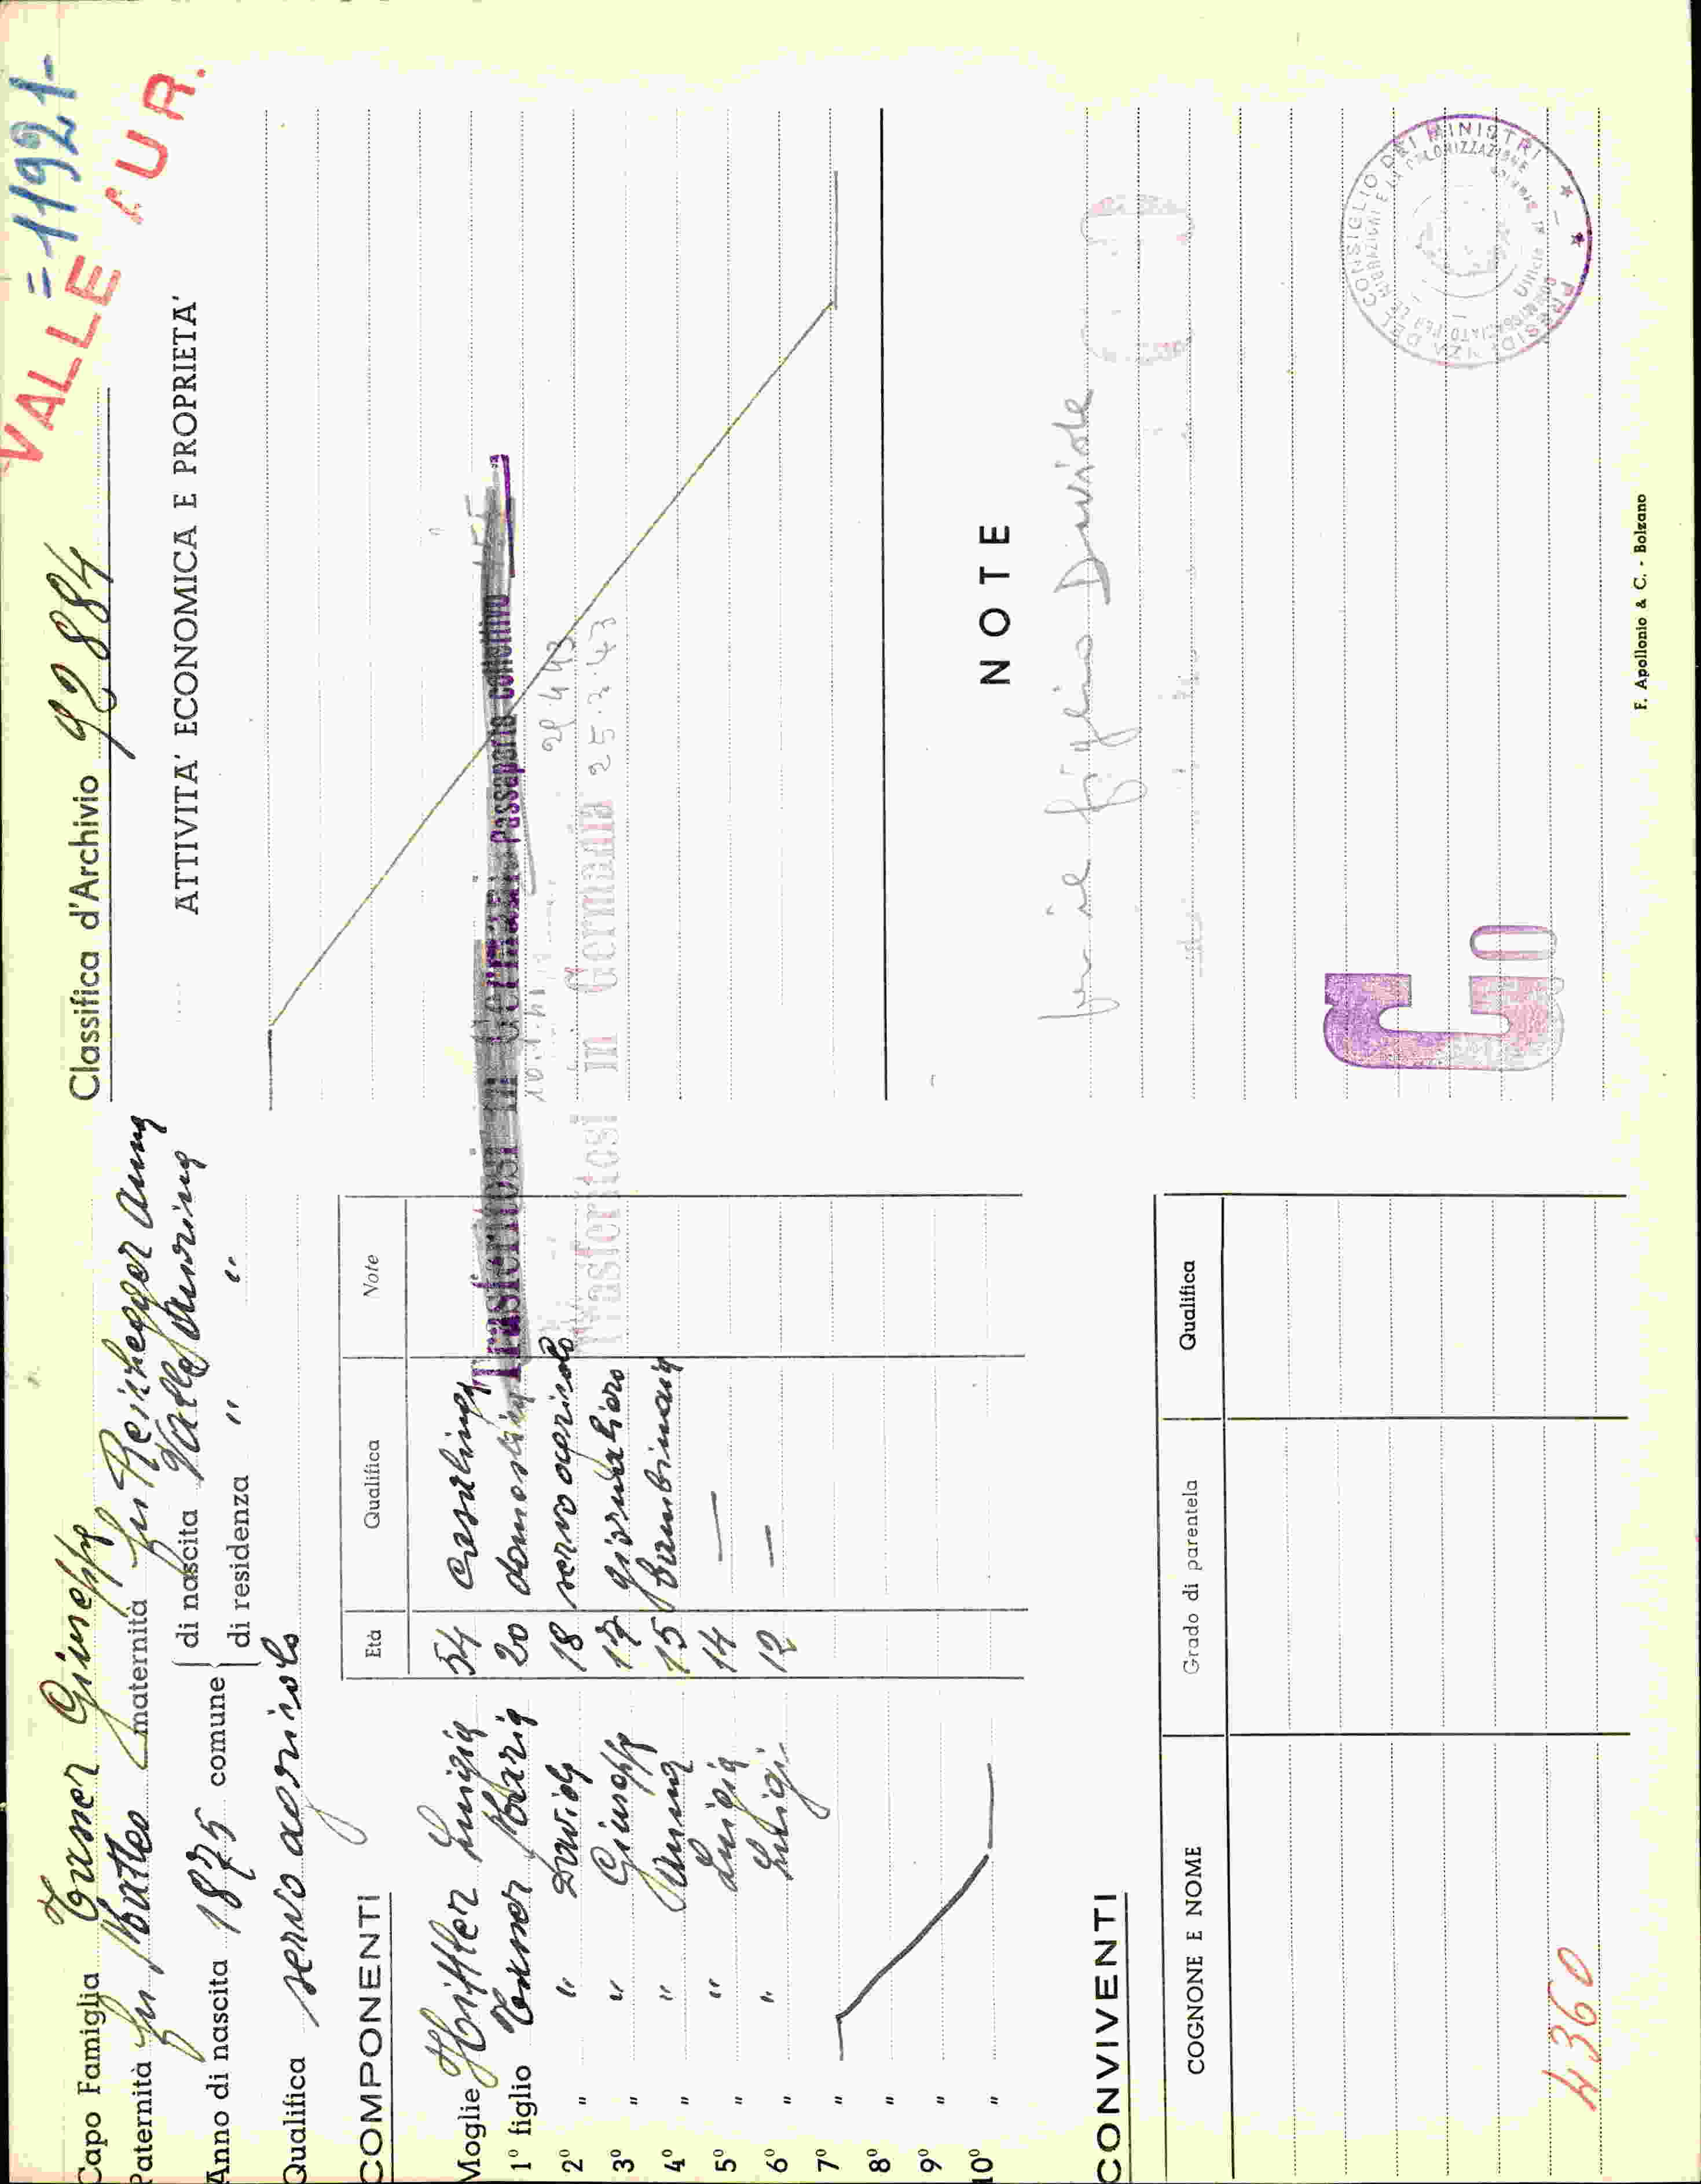 Classifica d'Archivio 92884
= 11921-
VALLE AUR.
Capo Famiglia Tasser Giuseppe
Paternità fu Matteo maternità fu Reinhegger Anna
Anno di nascita 1875 comune di nascita Valle Aurina
di residenza " "
Qualifica servo agricolo
COMPONENTI
Età Qualifica Note
Moglie Luigia 54 casalinga
1° figlio Maria 20 domestica
2° " " David 18 servo agricolo
3° " " Giuseppe 17 giornaliero
4° " " Anna 15 bambinaia
5° " " Luigia 14 —
6° " " Luigi 12 —
7° "
8° "
9° "
10° "
CONVIVENTI
COGNONE E NOME Grado di parentela Qualifica
4360
ATTIVITA' ECONOMICA E PROPRIETA'
Trasferitosi in Germania Passaporto collettivo
Trasferitosi in Germania 25.2.43
NOTE
per il figlio Davide
PRESIDENZA DEL CONSIGLIO DEI MINISTRI
F. Apollonio & C. - Bolzano